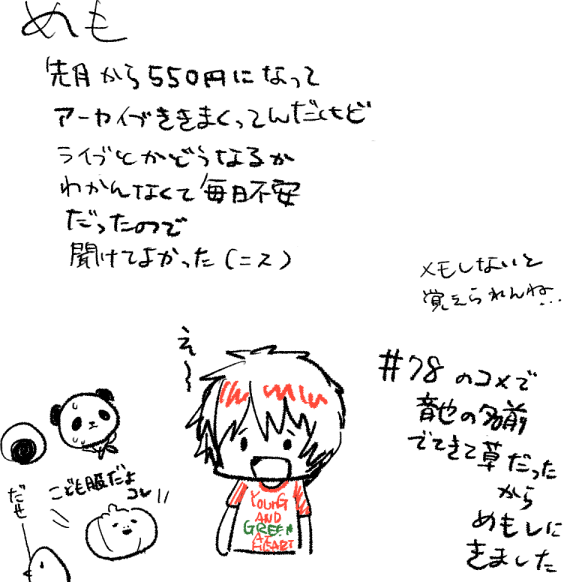 めも
先月から550円になって
アーカイブききまくってんだけど
ライブとかどうなるか
わかんなくて毎日不安
だったので
聞けてよかった(ニス)
メモしないと
覚えられんね…
え〜
#78のコメで
音也の名前
でてきて草だった
から
めもしに
きました
こども服だよ
コレ!!
だせ
YOUNG
AND
GREEN
AT
HEART